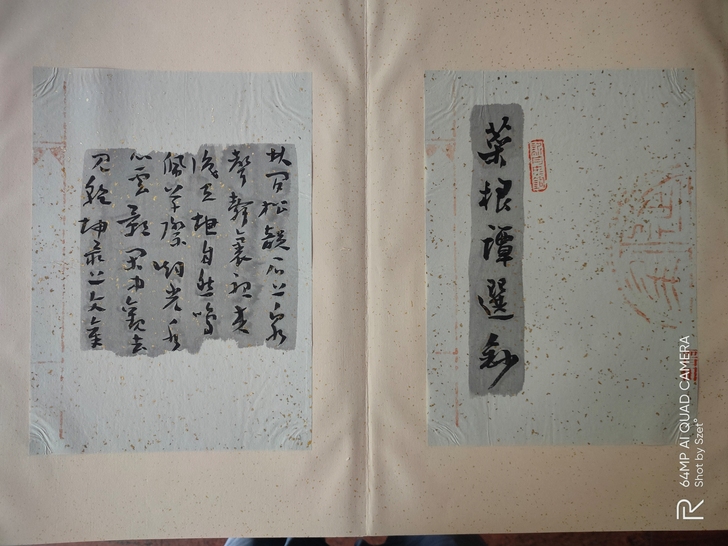 菜根譚選鈔
林间松韻石上泉
聲静裏聽来
識天地自然鳴
佩草際烟光水
心雲影閑中觀去
見乾坤最上文章
64MP AI QUAD CAMERA
Shot by Szet°